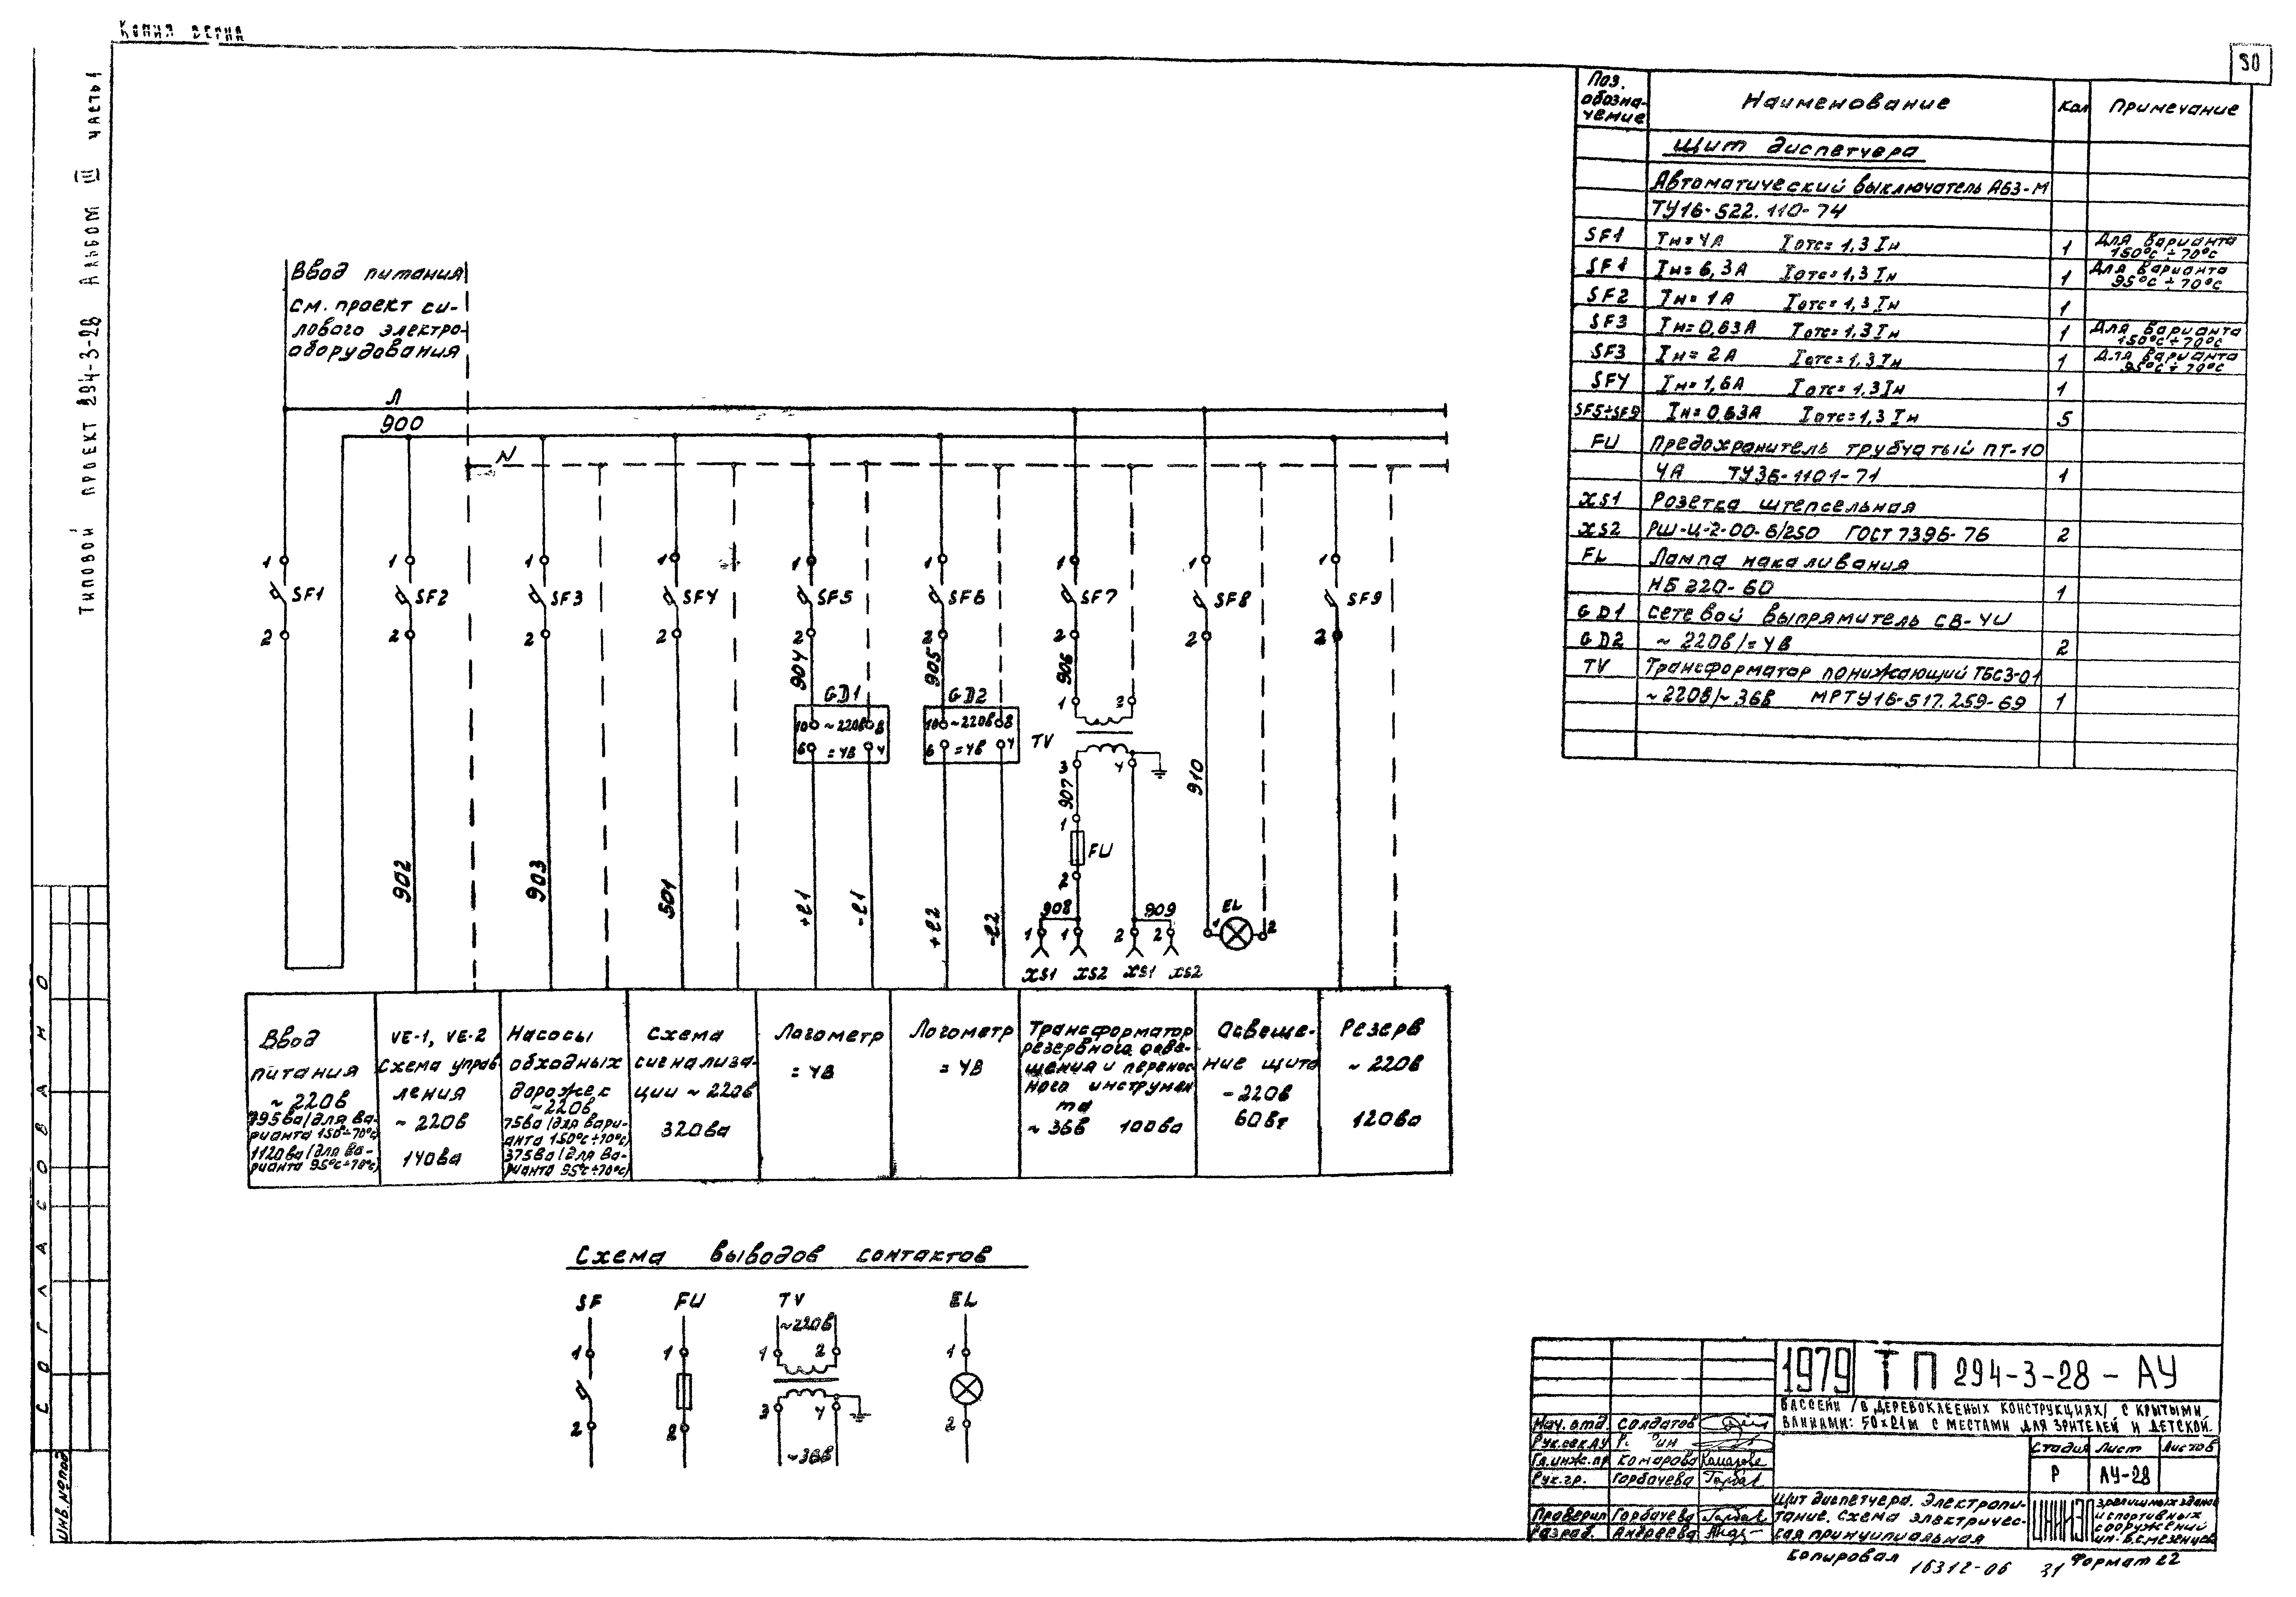 Копия верна
30
Типовой проект 294-3-28 Альбом III часть 1
Поз. обозна-чение
Наименование
Кол
Примечание
Щит диспетчера
Автоматический выключатель А63-М
ТУ16-522.110-74
SF1 Iн=4А Iотс=1,3Iн 1 Для варианта 150°С÷70°С
SF1 Iн=6,3А Iотс=1,3Iн 1 Для варианта 95°С÷70°С
SF2 Iн=1А Iотс=1,3Iн 1
SF3 Iн=0,63А Iотс=1,3Iн 1 Для варианта 150°С÷70°С
SF3 Iн=2А Iотс=1,3Iн 1 Для варианта 95°С÷70°С
SF4 Iн=1,6А Iотс=1,3Iн 1
SF5÷SF9 Iн=0,63А Iотс=1,3Iн 5
FU Предохранитель трубчатый ПТ-10
4А ТУ36-1101-71 1
XS1 Розетка штепсельная
XS2 РШ-Ц-2-00-6/250 ГОСТ 7396-76 2
FL Лампа накаливания
НБ 220-60 1
GD1 Сетевой выпрямитель СВ-4Ц
GD2 ~220в/=4в 2
TV Трансформатор понижающий ТБС3-01
~220в/~36в МРТУ16-517.259-69 1
Ввод питания
см. проект си-
лового электро-
оборудования
Л
900
N
1 1 1 1 1 1 1 1 1
SF1 SF2 SF3 SF4 SF5 SF6 SF7 SF8 SF9
2 2 2 2 2 2 2 2 2
904 905 906
GD1 GD2
1 2
10 ~220в 8 10 ~220в 8
6 =4в 4 6 =4в 4
TV
3 4
907
910
1
FU
2
902 903 501 +e1 -e1 +e2 -e2
908 909 EL
1 1 2 2 1 2
XS1 XS2 XS1 XS2
Ввод
питания
~220в
995ва/для ва-
рианта 150°÷70°С)
1120ва/для ва-
рианта 95°С÷70°С)
VE-1, VE-2
схема управ
ления
~220в
140ва
Насосы
обходных
дорожек
~220в
75ва/для вари-
анта 150°С÷70°С)
375ва/для ва-
рианта 95°С÷70°С)
Схема
сигнализа-
ции ~220в
320ва
Логометр
=4в
Логометр
=4в
Трансформатор
резервного осве-
щения и перенос
ного инструмен
та
~36в 100ва
Освеще-
ние щита
~220в
60вт
Резерв
~220в
120ва
Схема выводов контактов
SF FU TV EL
~220в
1 1 1 2 1
2 2 3 4 2
~36в
СОГЛАСОВАНО
Инв.№ подл
1979 ТП 294-3-28-АУ
Бассейн /в деревоклееных конструкциях/ с крытыми
ваннами: 50×21м с местами для зрителей и детской.
Нач.отд. Солдатов
Рук.сек.АУ
Гл.инж.пр Комарова
Рук.гр. Горбачева
Проверил Горбачева
Разраб. Андреева
Стадия Лист Листов
Р АУ-28
Щит диспетчера. Электропи-
тание. Схема электричес-
кая принципиальная
ЦНИИЭП
зрелищных зданий
и спортивных
сооружений
им. Б.С.Мезенцева
Копировал 16312-06 31 Формат 22